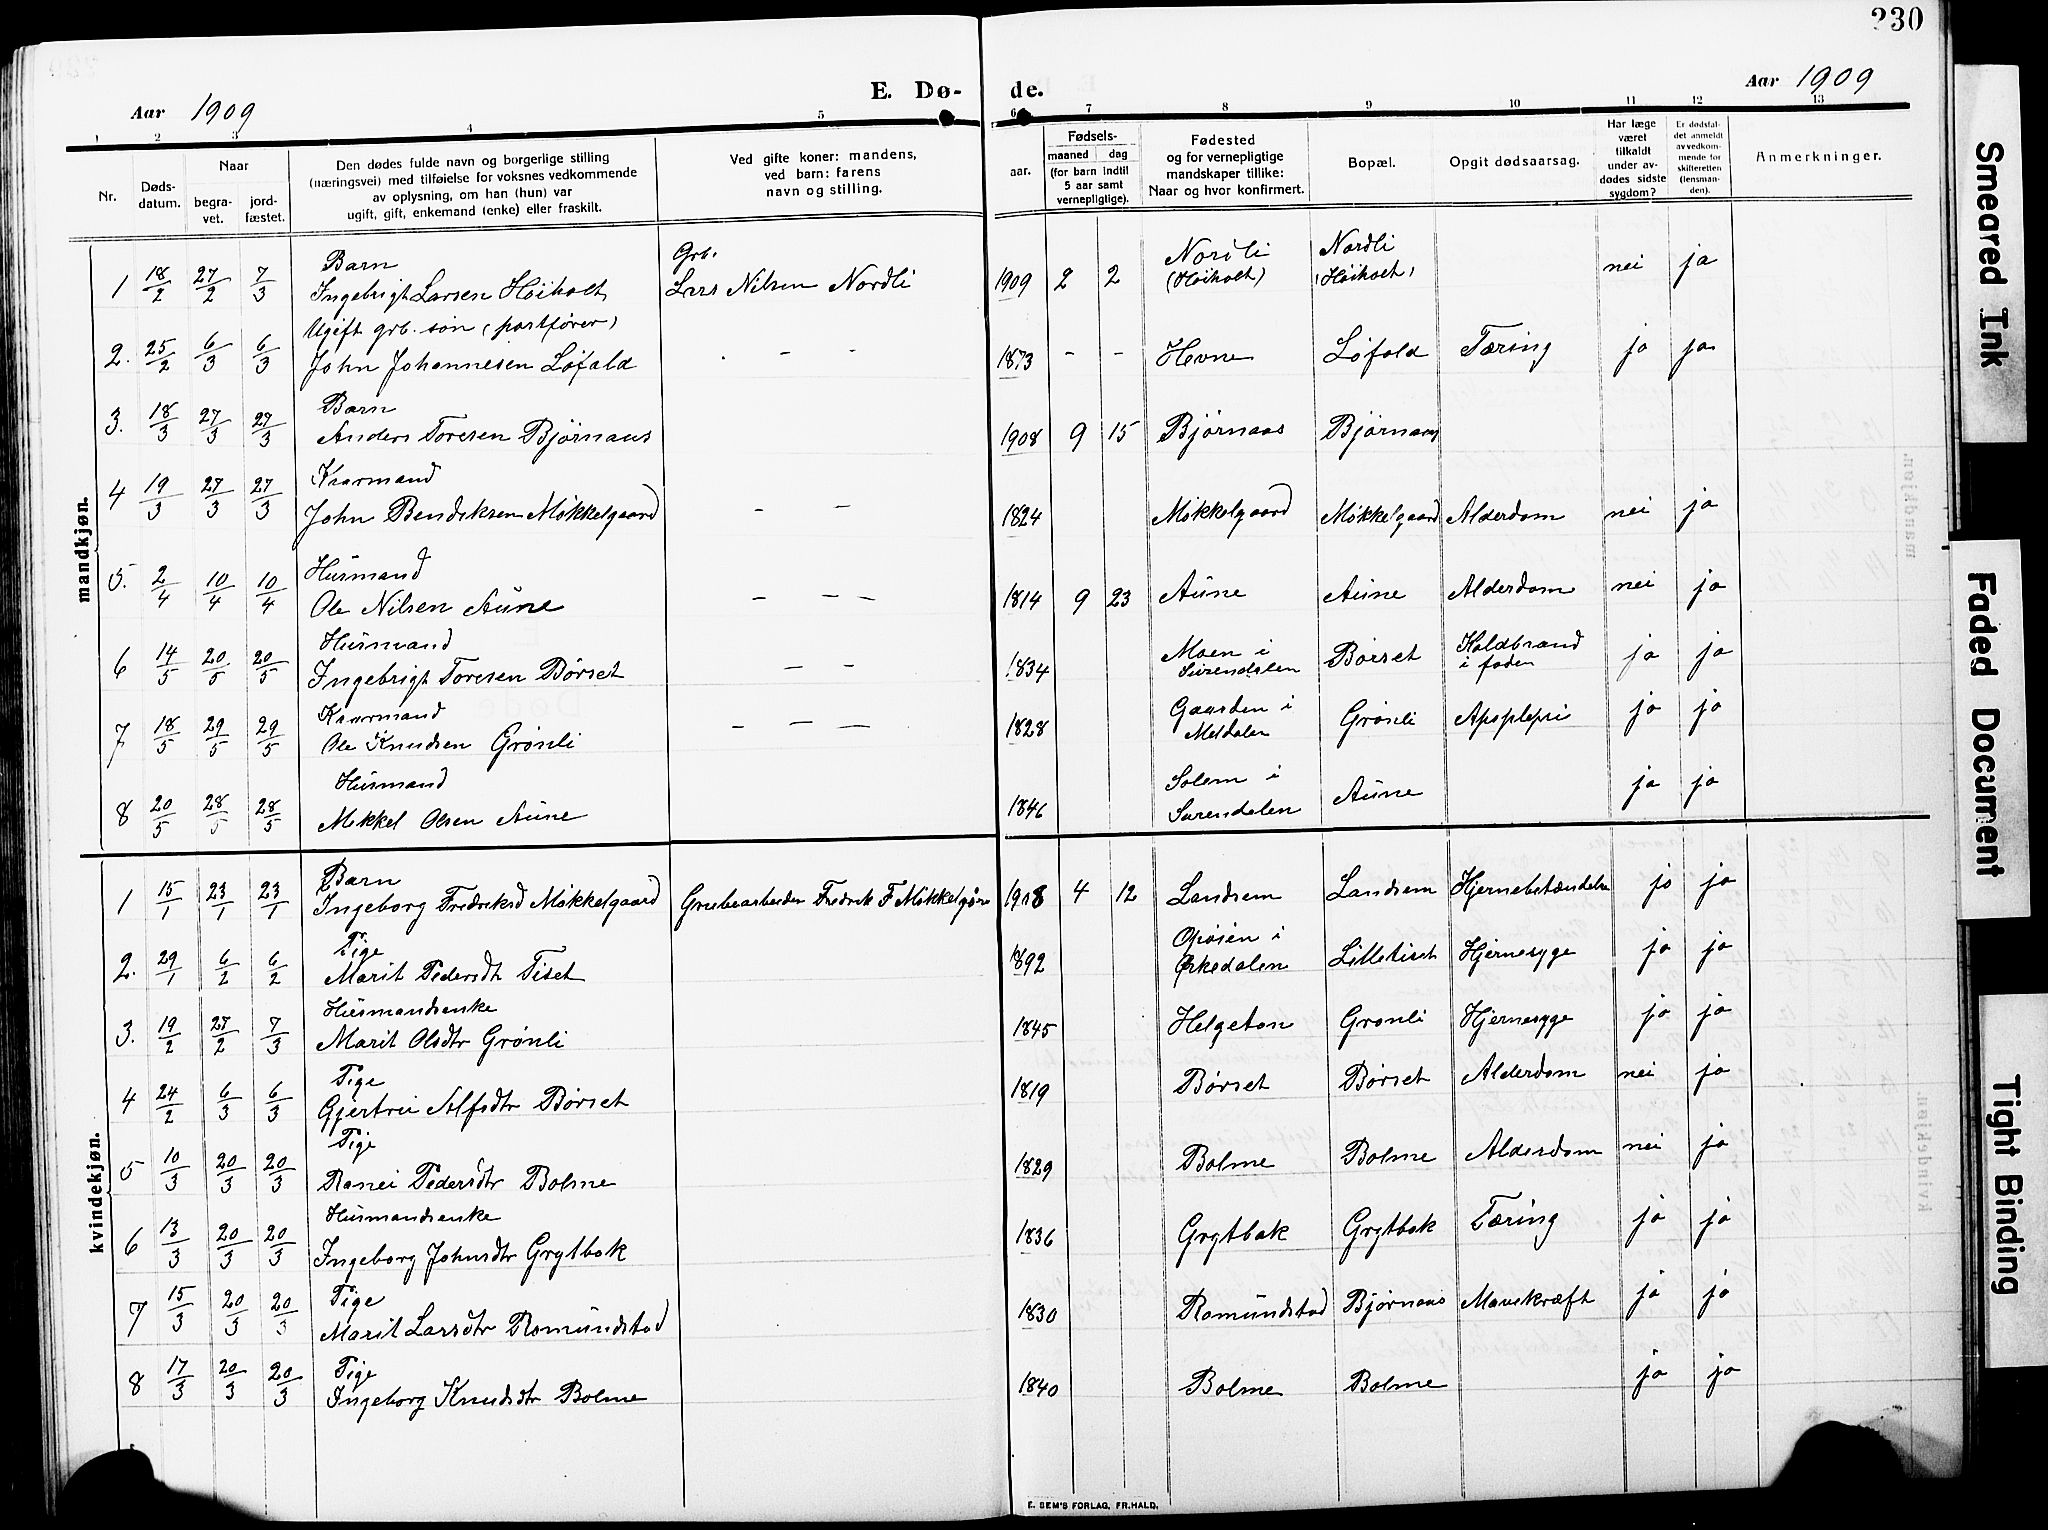 330
E. Dø- de.
Aar 1909
Aar 1909
1 2 3 4 5 6 7 8 9 10 11 12 13
Nr.
Døds-
datum.
Naar
begra-
vet.
jord-
fæstet.
Den dødes fulde navn og borgerlige stilling
(næringsvei) med tilføielse for voksnes vedkommende
av oplysning, om han (hun) var
ugift, gift, enkemand (enke) eller fraskilt.
Ved gifte koner: mandens,
ved barn: farens
navn og stilling.
Fødsels-
aar.
maaned dag
(for barn indtil
5 aar samt
vernepligtige).
Fødested
og for vernepligtige
mandskaper tillike:
Naar og hvor konfirmert.
Bopæl.
Opgit dødsaarsag.
Har læge
været
tilkaldt
under av-
dødes sidste
sygdom?
Er dødsfal-
det anmeldt
av vedkom-
mende for
skifteretten
(lensman-
den).
Anmerkninger.
mandkjøn.
Barn Grb. Nordli Nordli
1 18/2 27/2 7/3 Ingebrigt Larsen Høiholt Lars Nilsen Nordli 1909 2 2 (Høiholt) (Høiholt) nei ja
Ugift grb. søn (postfører)
2. 25/2 6/3 6/3 John Johannesen Løfald - - - 1873 - - Hevne Løfald Tæring ja ja
Barn
3. 18/3 27/3 27/3 Anders Toresen Bjørnaas 1908 9 15 Bjørnaas Bjørnaas
Kaarmand
4 19/3 27/3 27/3 John Bendiksen Møkkelgaard - - 1824 Møkkelgaard Møkkelgaard Alderdom nei ja
Husmand
5. 2/4 10/4 10/4 Ole Nilsen Aune - - - 1814 9 23 Aune Aune Alderdom nei ja
Husmand Moen i Koldbrand
6 14/5 20/5 20/5 Ingebrigt Toresen Børset - - 1834 Surendalen Børset i foden ja ja
Kaarmand Gaarden i
7 18/5 29/5 29/5 Ole Knudsen Grønli - - - 1828 Meldalen Grønli Apoplepsi ja ja
Husmand Solem i
8 20/5 28/5 28/5 Mikkel Olsen Aune 1846 Surendalen Aune ja ja
kvindekjøn.
Barn
1 15/1 23/1 23/1 Ingeborg Fredriksd Møkkelgaard Grubearbeider Fredrik F Møkkelgaard 1908 4 12 Landsem Landsem Hjernebetændelse ja ja
Pige i
2. 29/1 6/2 6/2 Marit Pedersdt Tiset 1892 Orkedalen Lilletiset Hjernesyge ja ja
Husmandsenke
3. 19/2 27/2 7/3 Marit Olsdtr Grønli 1845 Helgeton Grønli Hjernesyge ja ja
Pige
4 24/2 6/3 6/3 Gjertru Alfsdtr Børset 1819 Børset Børset Alderdom nei ja
Pige
5 10/3 20/3 20/3 Ranei Pedersdtr Bolme 1829 Bolme Bolme Alderdom nei ja
Husmandsenke
6 13/3 20/3 20/3 Ingeborg Johnsdtr Grytbak 1836 Grytbak Grytbak Tæring ja ja
Pige
7 15/3 20/3 20/3 Marit Larsdtr Romundstad 1830 Romundstad Bjørnaas Mavekræft ja ja
Pige
8 17/3 20/3 20/3 Ingeborg Knudsdtr Bolme 1840 Bolme Bolme ja ja
E. SEM'S FORLAG, FR.HALD.
Smeared Ink
Faded Document
Tight Binding